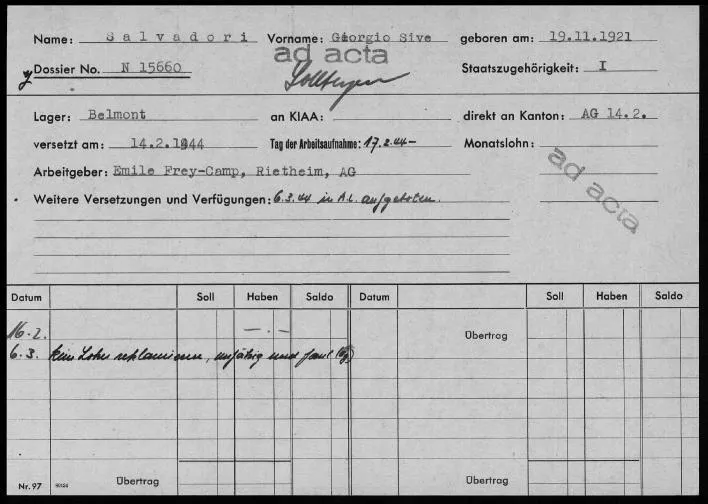 Name: Salvadori Vorname: Giorgio Sive geboren am: 19.11.1921
ad acta
Dossier No. N 15660 Staatszugehörigkeit: I
Lager: Belmont an KIAA: direkt an Kanton: AG 14.2.
versetzt am: 14.2.1944 Tag der Arbeitsaufnahme: 17.2.44- Monatslohn:
ad acta
Arbeitgeber: Emile Frey-Camp, Rietheim, AG
Weitere Versetzungen und Verfügungen: 6.3.44 in A.L. aufgeboten.
Datum Soll Haben Saldo Datum Soll Haben Saldo
16.2. —.— Übertrag
6.3. kein Lohn reklamieren, unfähig und faul
Nr. 97 Übertrag Übertrag